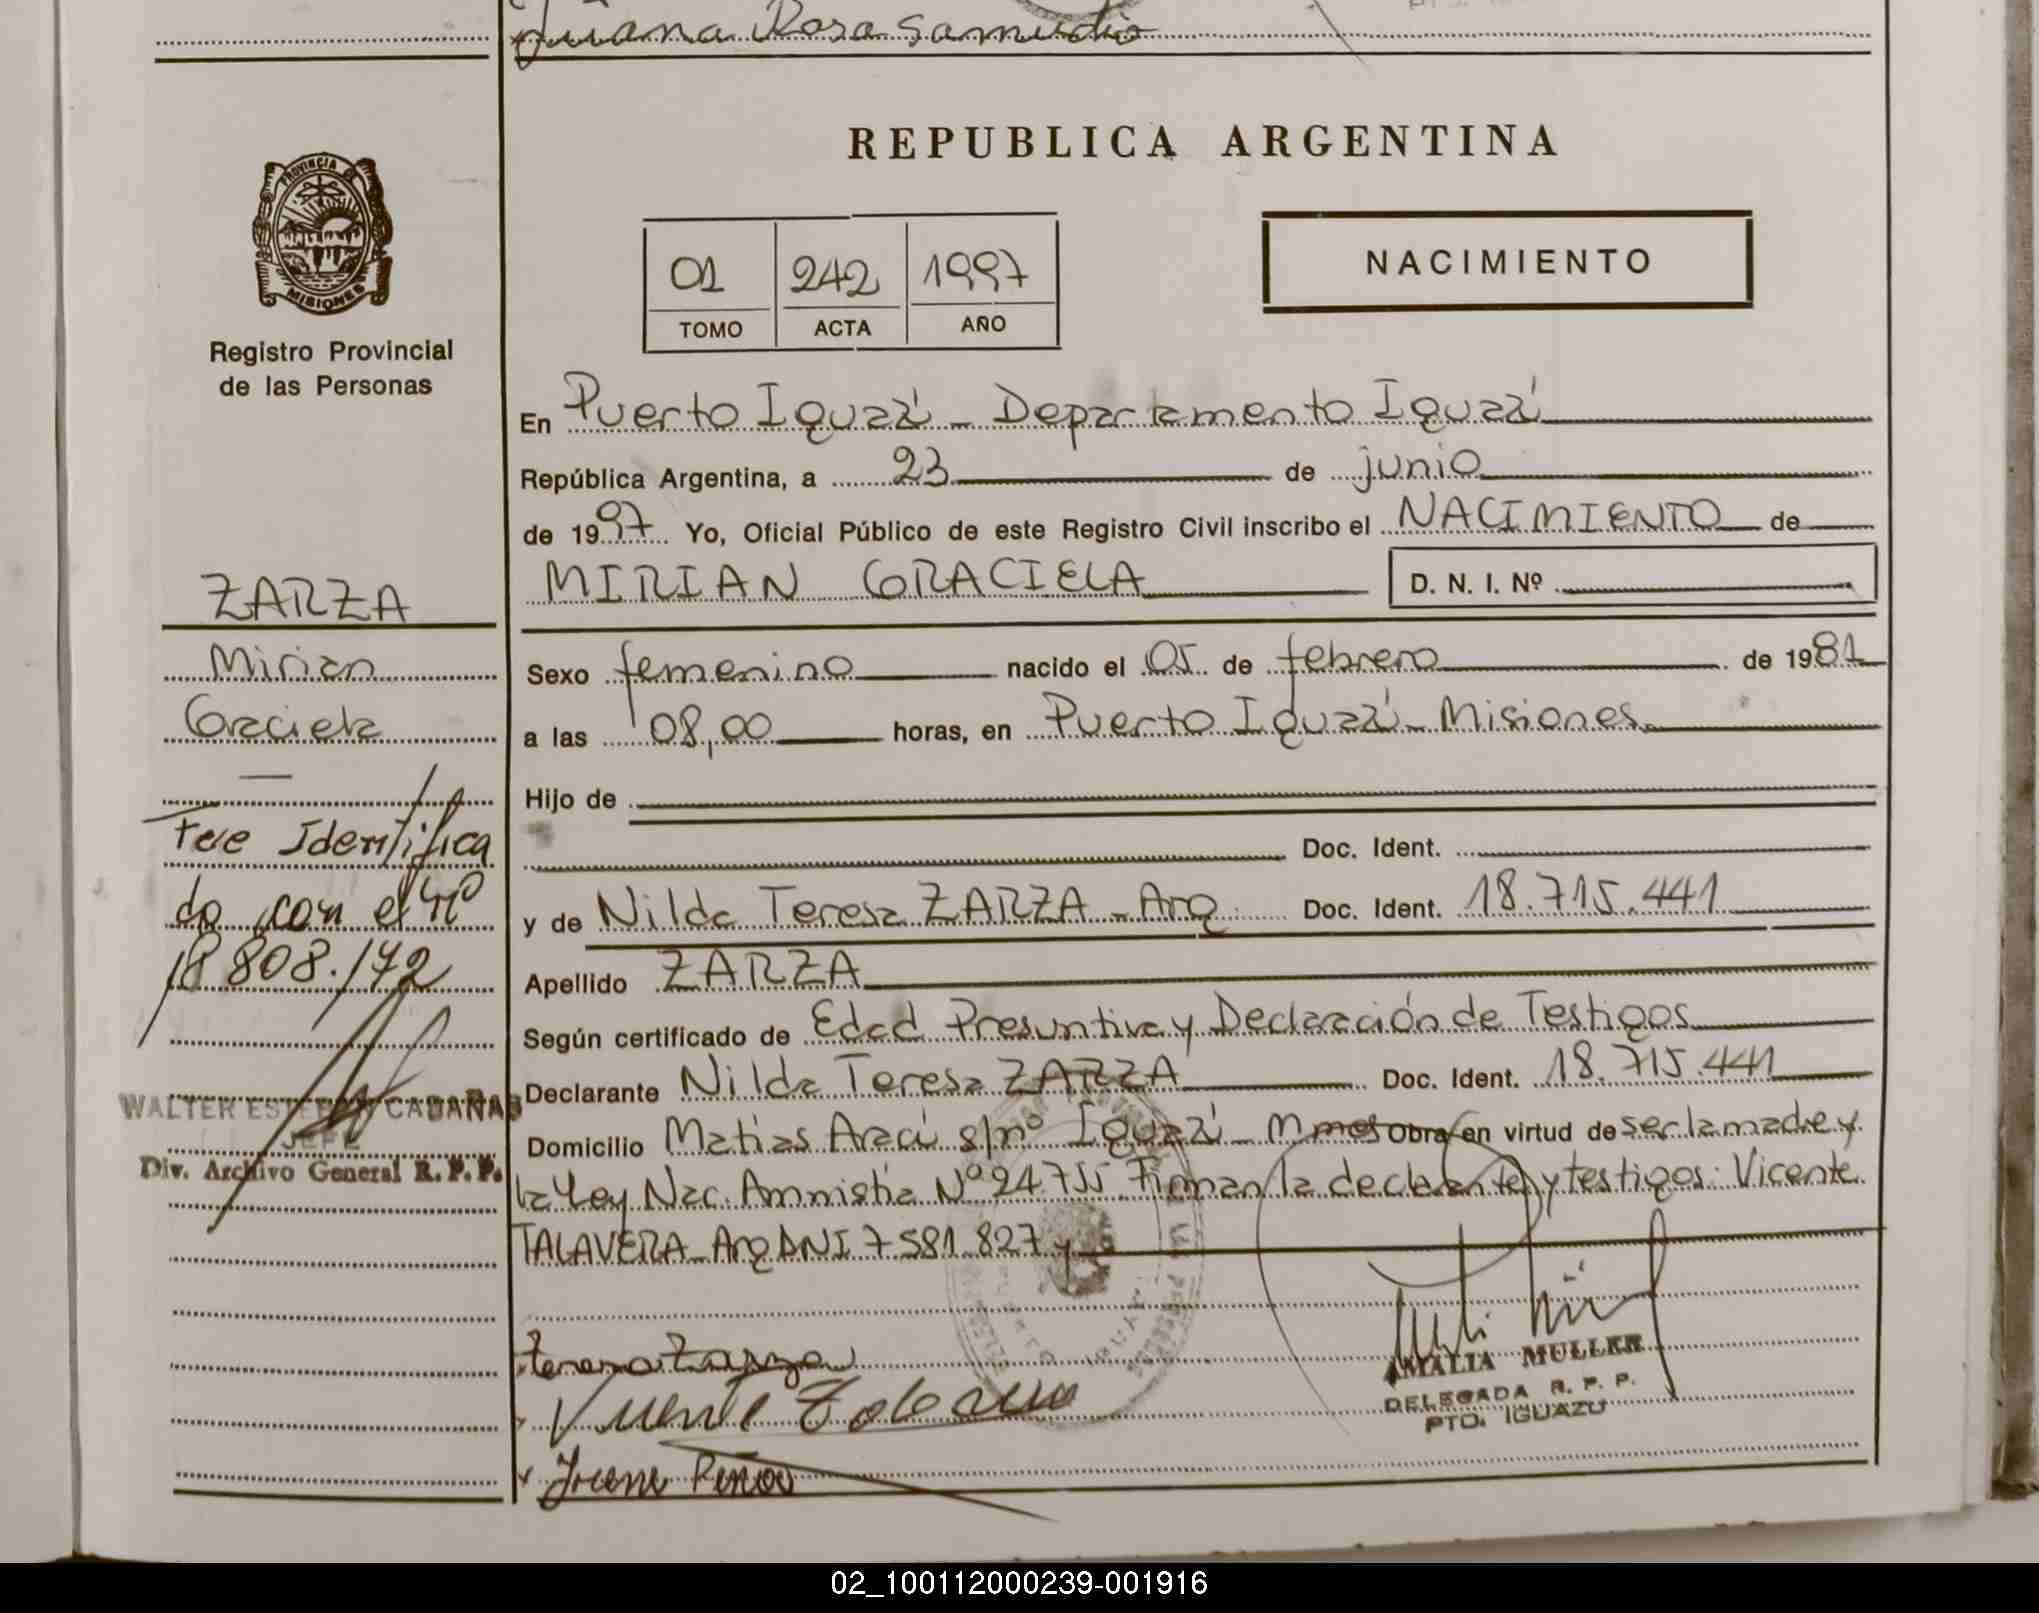 Juana Rosa Samudio
REPUBLICA ARGENTINA
PROVINCIA DE
MISIONES
Registro Provincial
de las Personas
01 242 1997
TOMO ACTA AÑO
NACIMIENTO
En Puerto Iguazú - Departamento Iguazú
República Argentina, a 23 de junio
de 1997 Yo, Oficial Público de este Registro Civil inscribo el NACIMIENTO de
MIRIAN GRACIELA D. N. I. Nº
ZARZA
Mirian
Graciela
Sexo femenino nacido el 05 de febrero de 1981
a las 08,00 horas, en Puerto Iguazú - Misiones
Hijo de
Doc. Ident.
y de Nilda Teresa ZARZA - Arg Doc. Ident. 18.715.441
Apellido ZARZA
Según certificado de Edad Presuntiva y Declaración de Testigos
Declarante Nilda Teresa ZARZA Doc. Ident. 18.715.441
Domicilio Matias Aracú s/nº Iguazú - Mnes Obra en virtud de ser la madre y
la Ley Nac. Amnistia Nº 24.755 Firman la declarante y testigos: Vicente
TALAVERA Arg DNI 7.581.827 y
Fue Identifica
do con el Nº
18 808.172
WALTER ESTEBAN CABAÑAS
JEFE
Div. Archivo General R. P. P.
Teresa Zarza
Irene
AMALIA MULLER
DELEGADA R. P. P.
PTO. IGUAZU
02_100112000239-001916